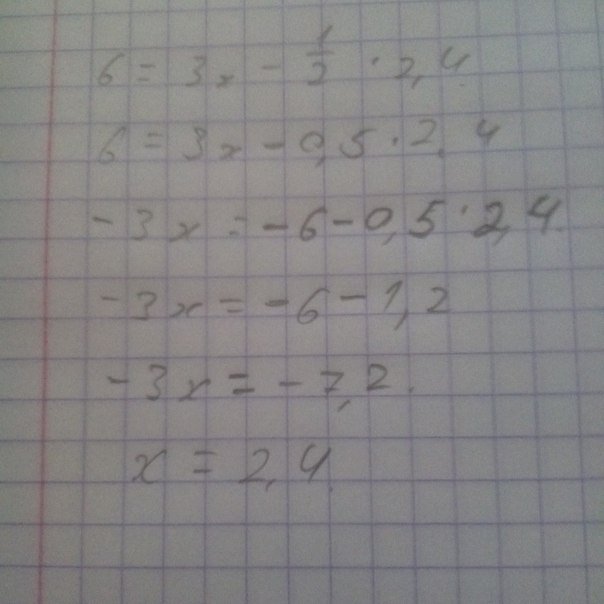 6 = 3x - 1/2 · 2,4
6 = 3x - 0,5 · 2,4
-3x = -6 - 0,5 · 2,4.
-3x = -6 - 1,2
-3x = -7,2.
x = 2,4.